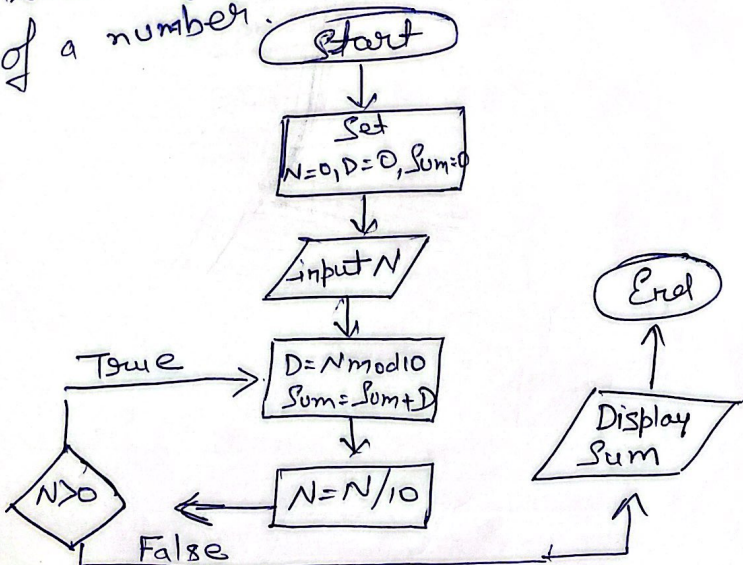 of a number.
Start
Set
N=0, D=0, Sum=0
input N
D=Nmod10
Sum=Sum+D
N=N/10
N>0
True
False
Display
Sum
End